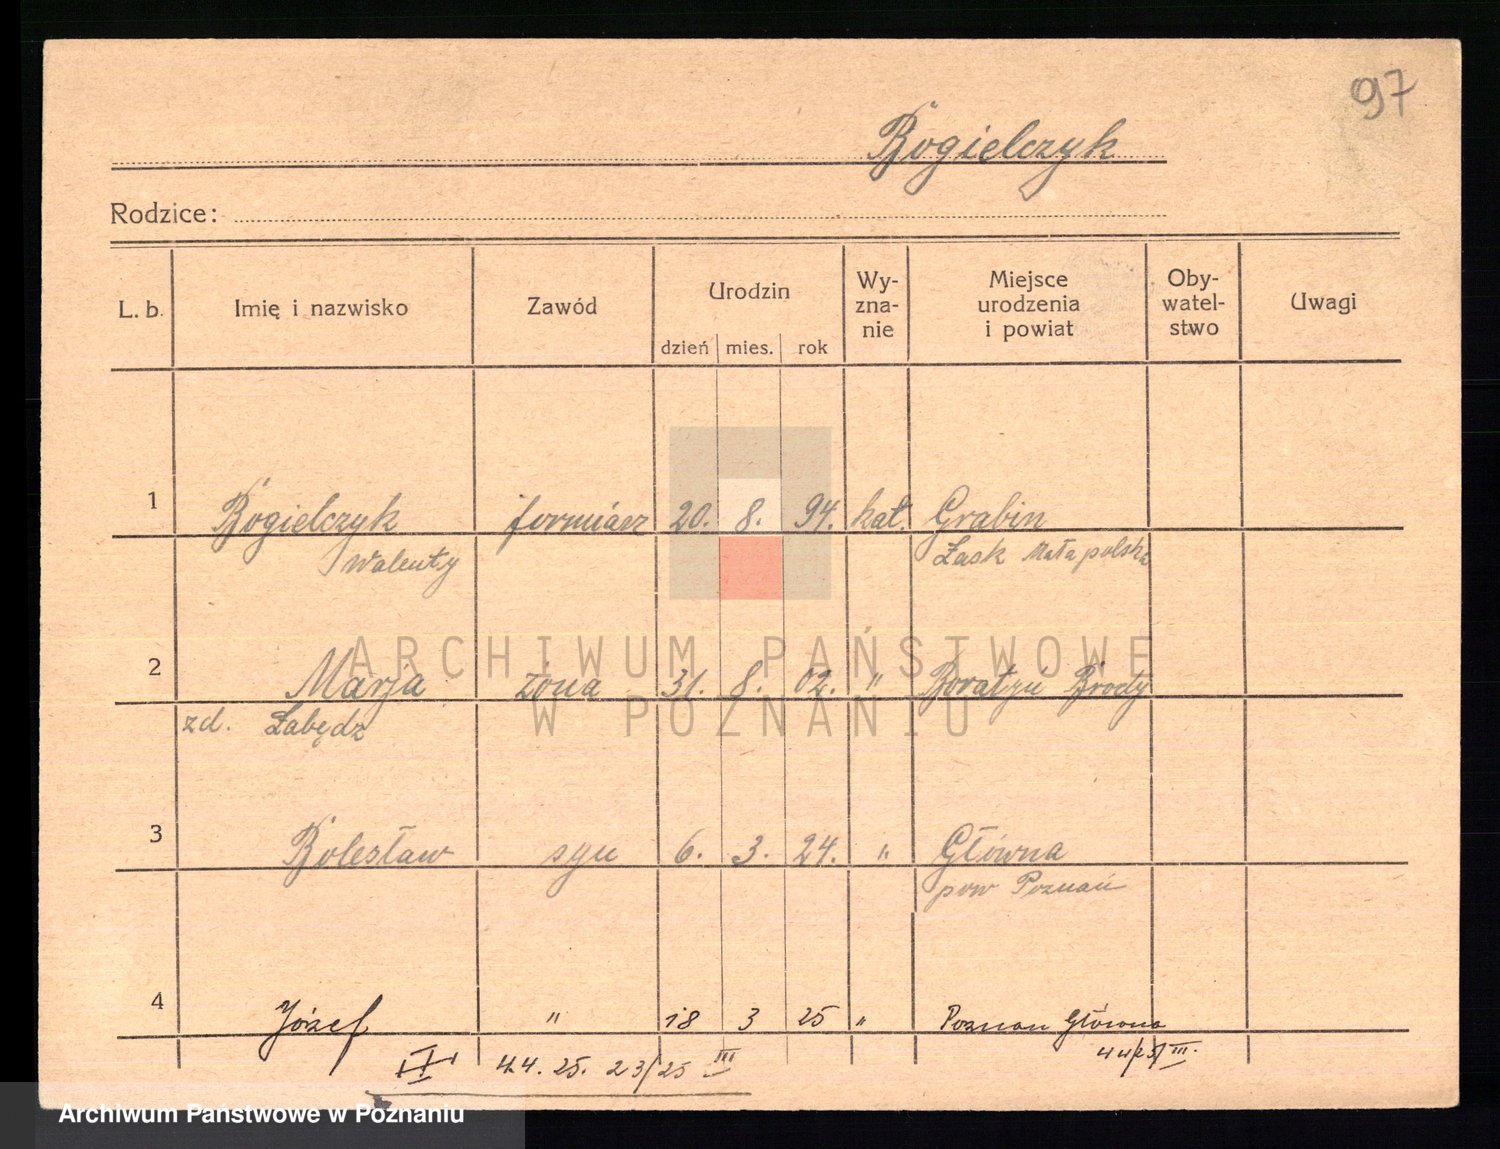 97
Bogielczyk
Rodzice:
L. b. Imię i nazwisko Zawód Urodzin Wy-zna-nie Miejsce urodzenia i powiat Oby-watel-stwo Uwagi
dzień mies. rok
1 Bogielczyk formiarz 20. 8. 94. kat. Grabin
Walenty Łask Małapolska
2 Marja żona 31. 8. 02. " Boratyn Brody
zd. Łabędz
3 Bolesław syn 6. 3. 24. " Główna
pow Poznań
4 Józef " 18 3 25 " Poznan Główna
III 4.4. 25. 23/25 III 44/25/III.
ARCHIWUM PAŃSTWOWE
W POZNANIU
Archiwum Państwowe w Poznaniu